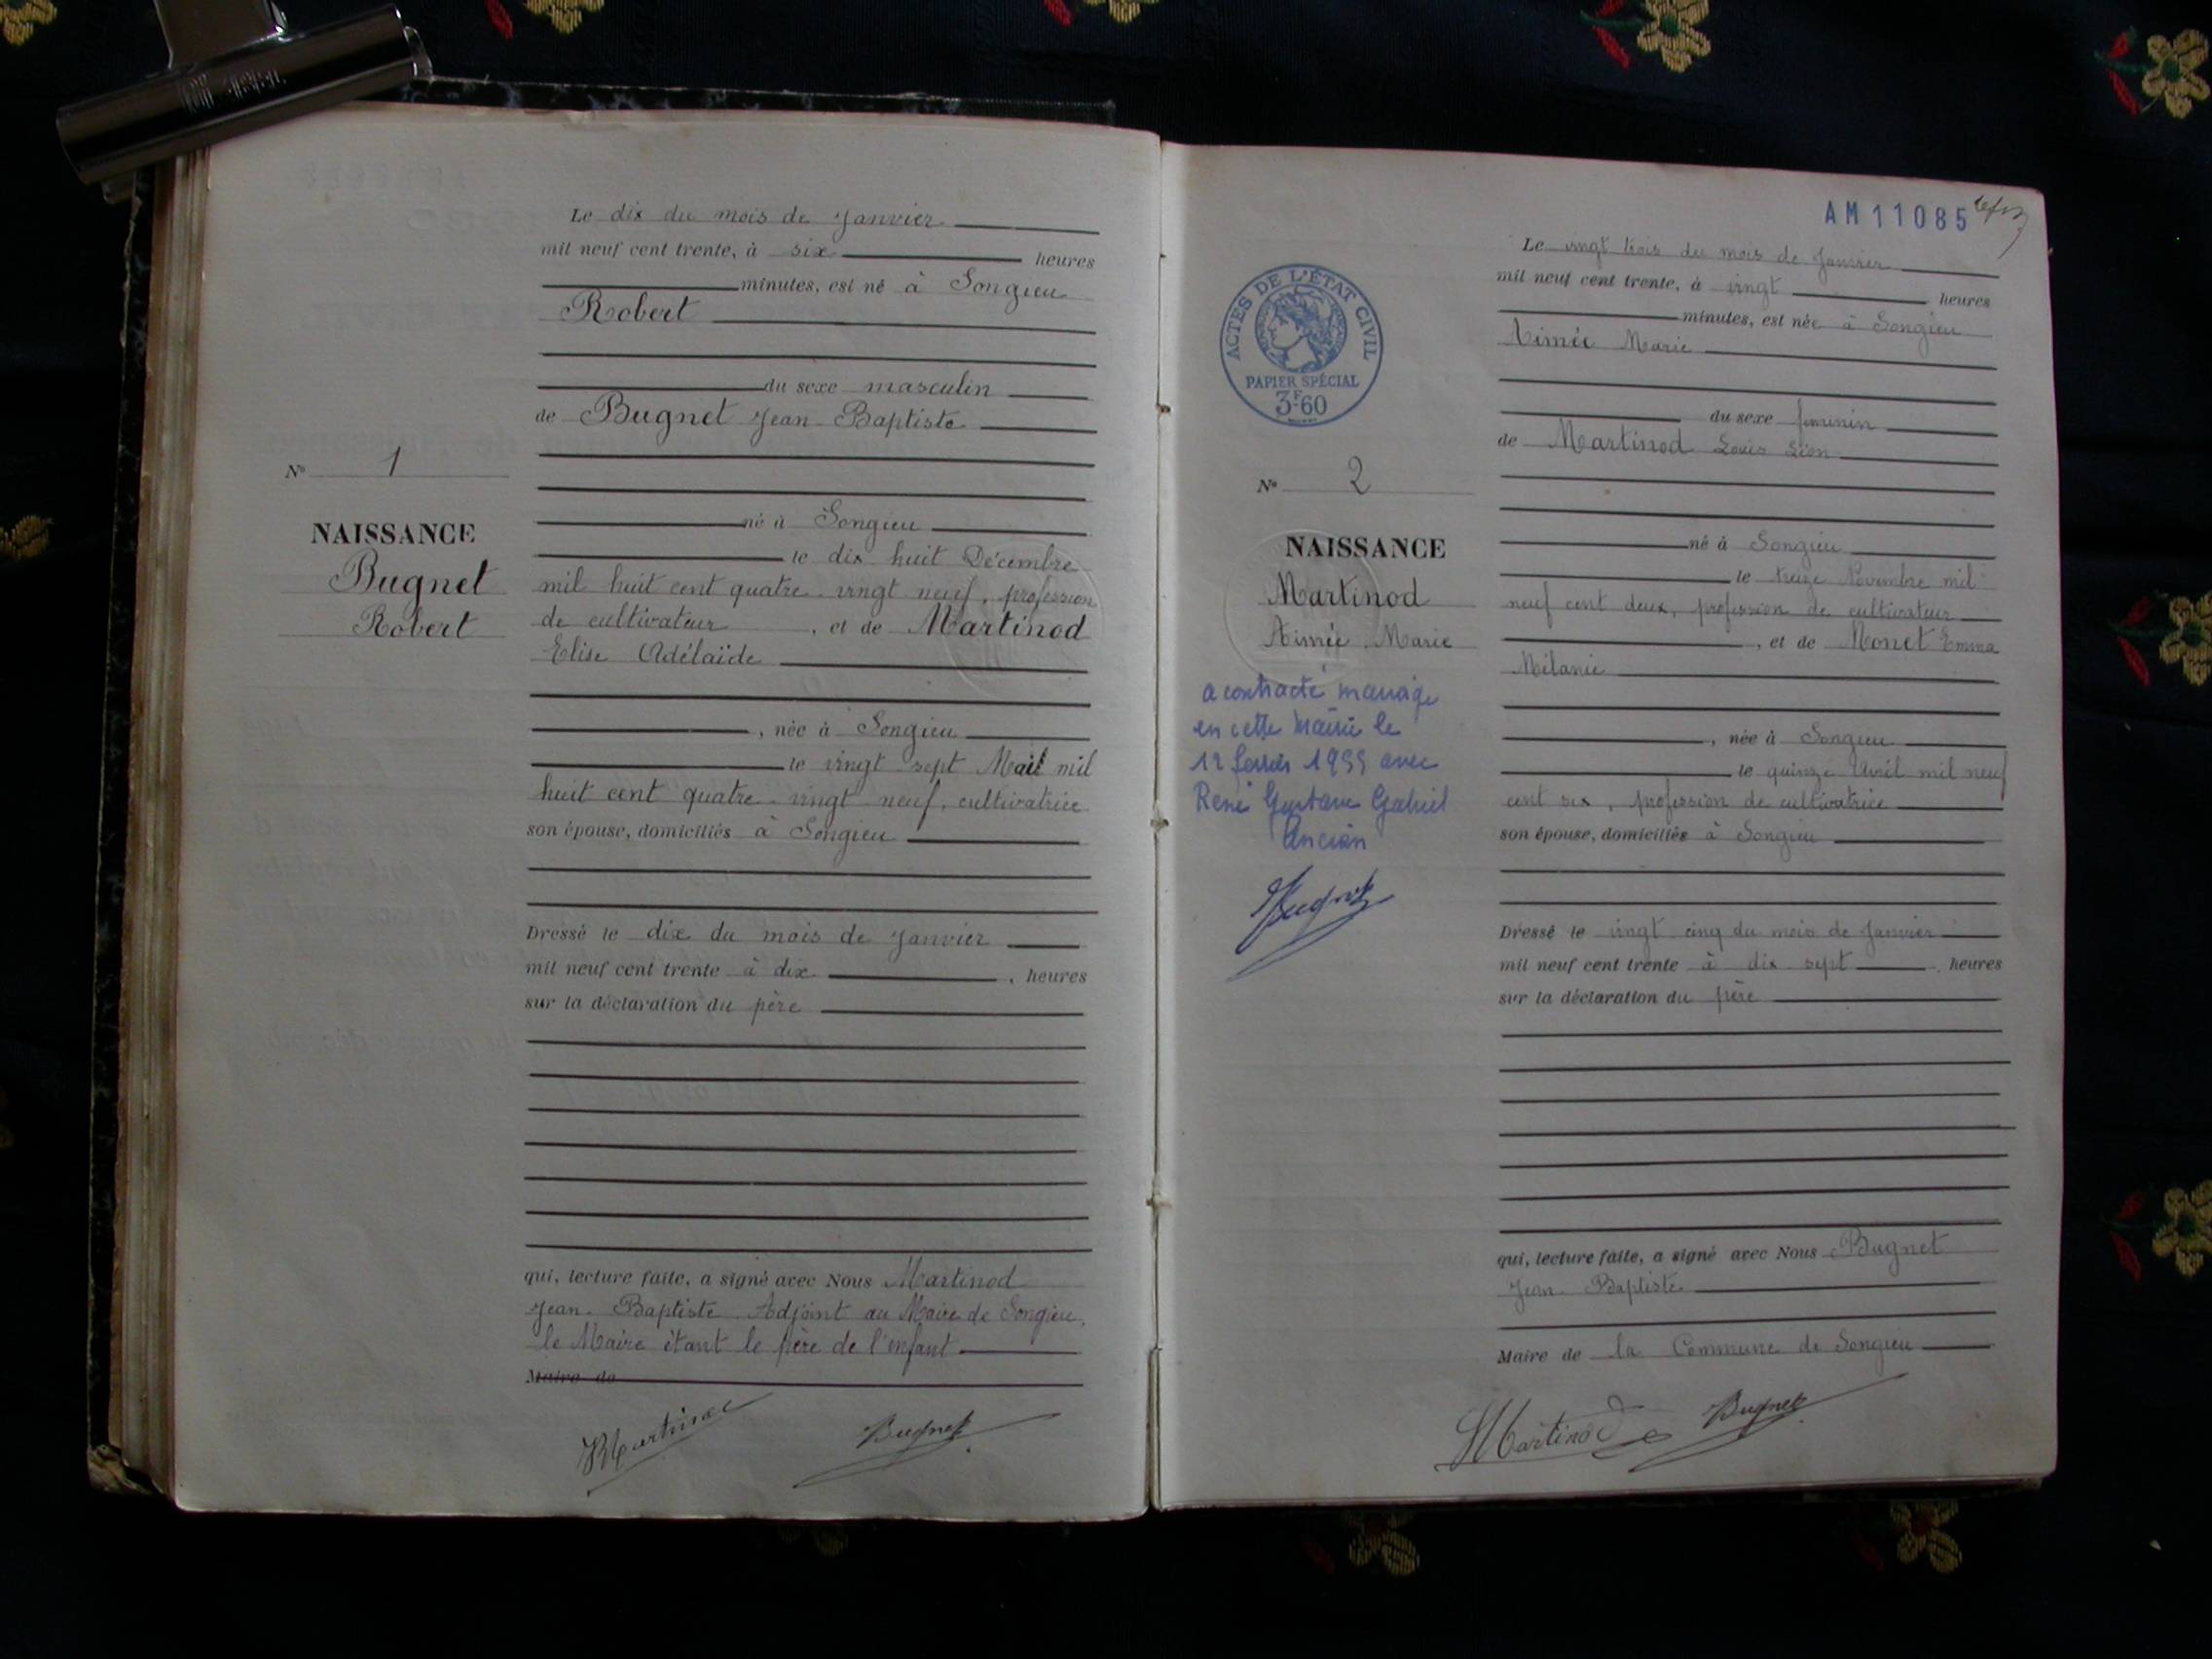 Le dix du mois de Janvier
mil neuf cent trente, à six heures
minutes, est né à Songieu
Robert
du sexe masculin
de Bugnet Jean-Baptiste
né à Songieu
le dix huit Décembre
mil huit cent quatre-vingt neuf, profession
de cultivateur, et de Martinod
Elise Adélaïde
, née à Songieu
le vingt sept Mai mil
huit cent quatre-vingt neuf, cultivatrice
son épouse, domiciliés à Songieu
Dressé le dix du mois de Janvier
mil neuf cent trente à dix, heures
sur la déclaration du père
qui, lecture faite, a signé avec Nous Martinod
Jean-Baptiste Adjoint au Maire de Songieu,
le Maire étant le père de l'enfant
Maire de
Martinod Bugnet
N° 1
NAISSANCE
Bugnet
Robert
AM11085
Le vingt trois du mois de Janvier
mil neuf cent trente, à vingt heures
minutes, est née à Songieu
Aimée Marie
du sexe féminin
de Martinod Louis Léon
né à Songieu
le treize Novembre mil
neuf cent deux, profession de cultivateur
, et de Monet Emma
Mélanie
, née à Songieu
le quinze Avril mil neuf
cent six, profession de cultivatrice
son épouse, domiciliés à Songieu
Dressé le vingt cinq du mois de Janvier
mil neuf cent trente à dix sept, heures
sur la déclaration du père
qui, lecture faite, a signé avec Nous Bugnet
Jean-Baptiste
Maire de la Commune de Songieu
Martinod Bugnet
ACTES DE L'ÉTAT CIVIL
PAPIER SPÉCIAL
3F.60
N° 2
NAISSANCE
Martinod
Aimée Marie
a contracté mariage
en cette mairie le
12 février 1955 avec
René Gustave Gabriel
Ancian
Bugnet